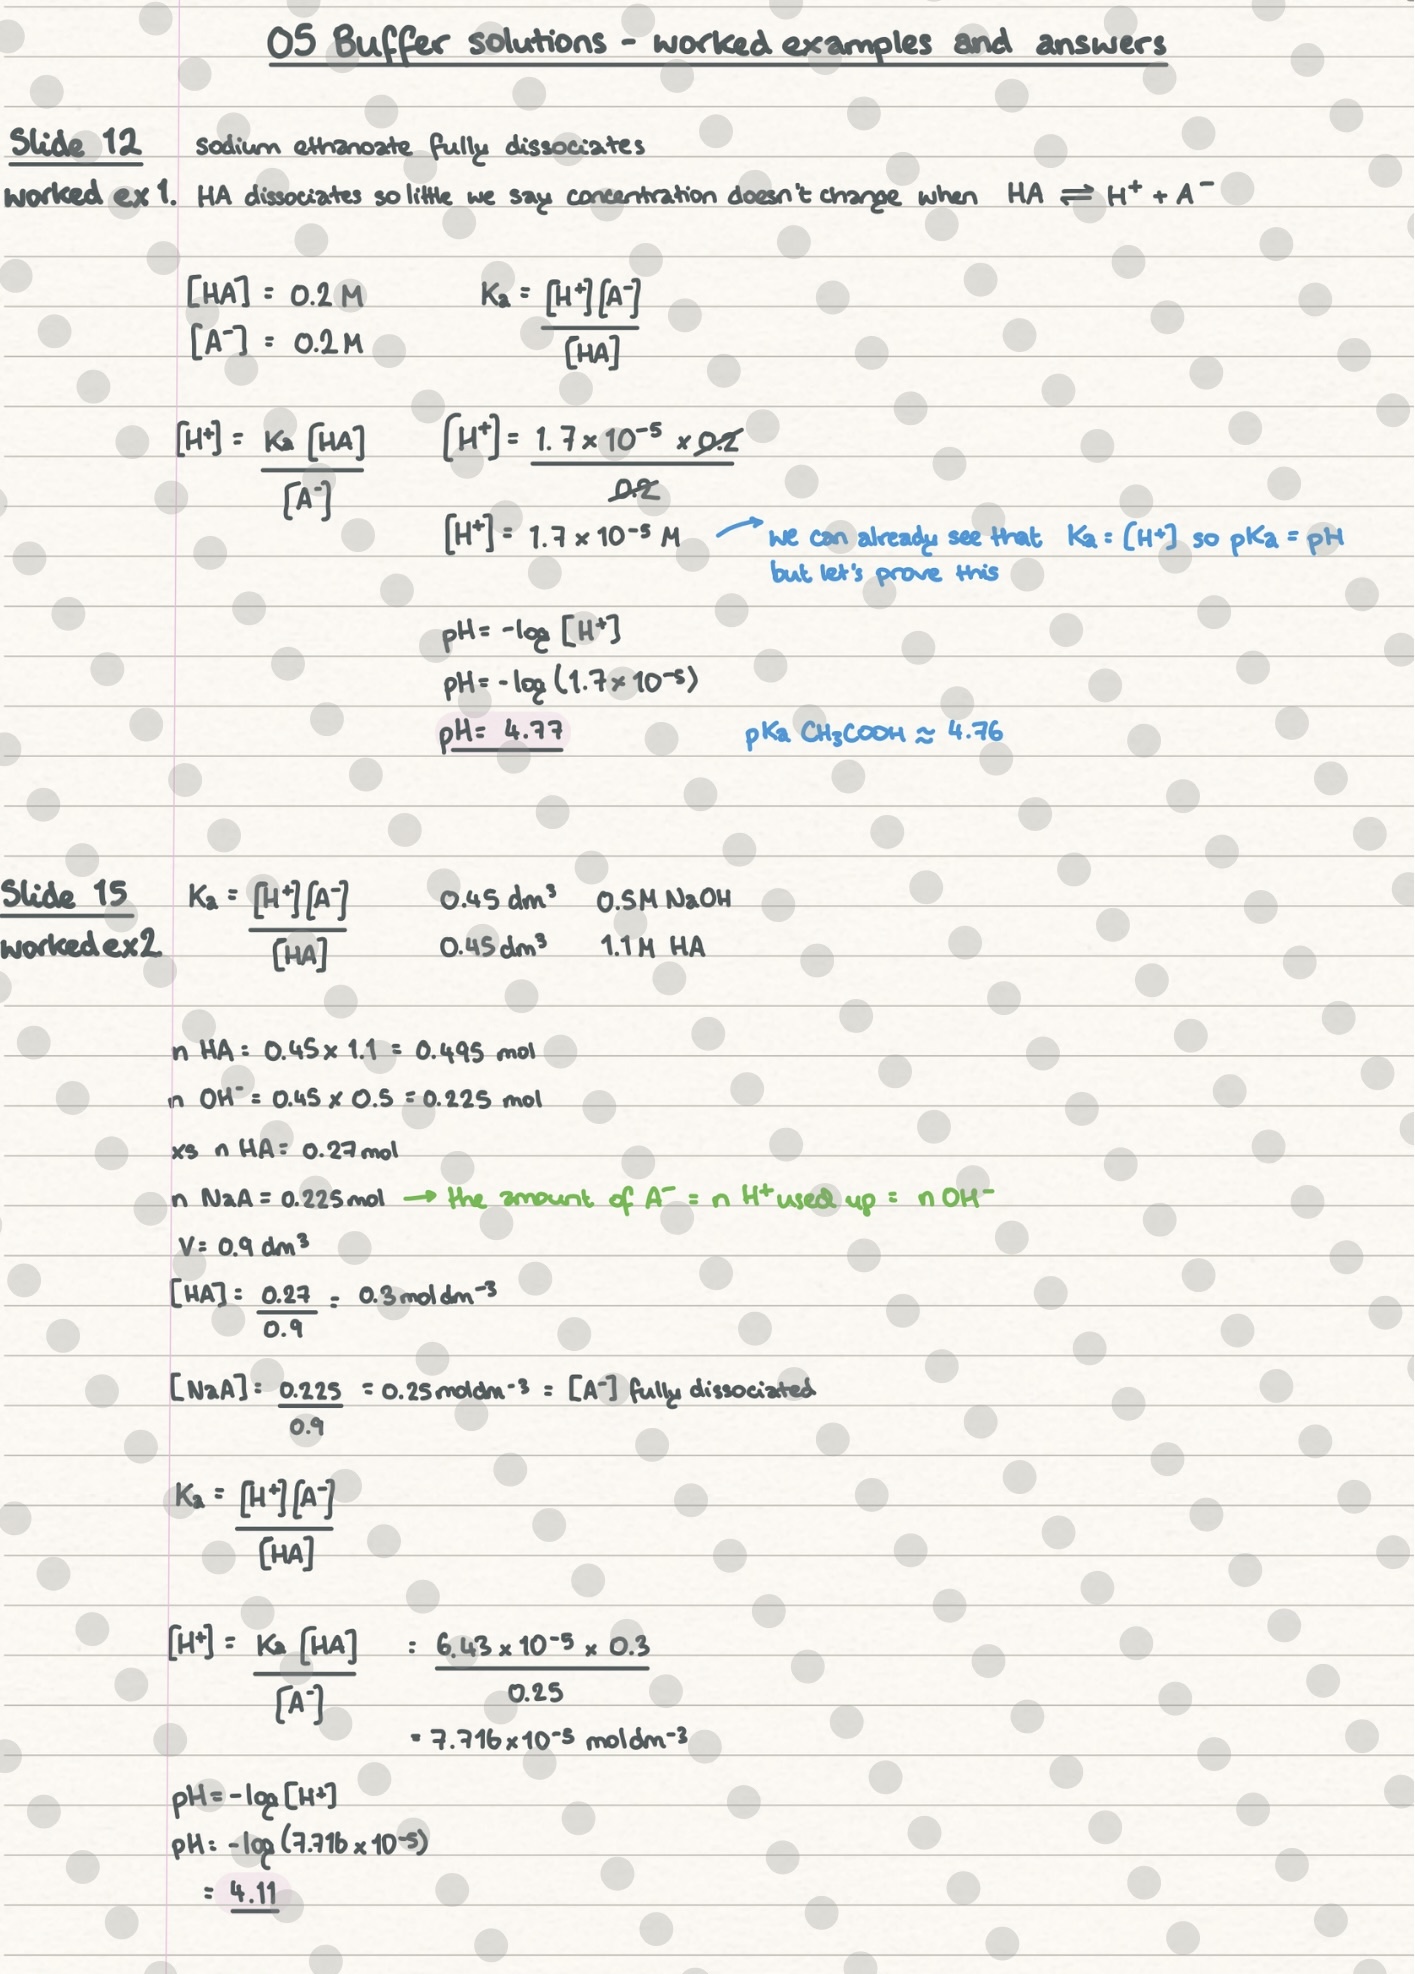 05 Buffer solutions - worked examples and answers
Slide 12 sodium ethanoate fully dissociates
worked ex 1. HA dissociates so little we say concentration doesn't change when HA ⇌ H⁺ + A⁻
[HA] = 0.2 M Ka = [H⁺][A⁻]
[A⁻] = 0.2 M [HA]
[H⁺] = Ka [HA] [H⁺] = 1.7 × 10⁻⁵ × 0.2
[A⁻] 0.2
[H⁺] = 1.7 × 10⁻⁵ M → we can already see that Ka = [H⁺] so pKa = pH
but let's prove this
pH = -log [H⁺]
pH = -log (1.7 × 10⁻⁵)
pH = 4.77 pKa CH₃COOH ≈ 4.76
Slide 15 Ka = [H⁺][A⁻] 0.45 dm³ 0.5M NaOH
worked ex 2 [HA] 0.45 dm³ 1.1M HA
n HA = 0.45 × 1.1 = 0.495 mol
n OH⁻ = 0.45 × 0.5 = 0.225 mol
xs n HA = 0.27 mol
n NaA = 0.225 mol → the amount of A⁻ = n H⁺ used up = n OH⁻
V = 0.9 dm³
[HA] = 0.27 = 0.3 mol dm⁻³
0.9
[NaA] = 0.225 = 0.25 mol dm⁻³ = [A⁻] fully dissociated
0.9
Ka = [H⁺][A⁻]
[HA]
[H⁺] = Ka [HA] = 6.43 × 10⁻⁵ × 0.3
[A⁻] 0.25
= 7.716 × 10⁻⁵ mol dm⁻³
pH = -log [H⁺]
pH = -log (7.716 × 10⁻⁵)
= 4.11